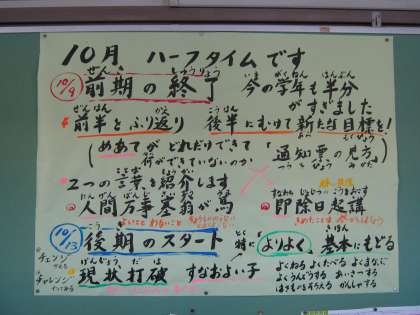 10月 ハーフタイムです
10/8 前期の終了 今の学年も半分
がすぎました
前半をふり返り 後半にむけて新たな目標を!
(めあてがどれだけできて
何ができていないのか)
「通知票の見方」
2つの言葉を紹介します
①人間万事塞翁が馬
②即除日起講
10/13 後期のスタート
とくに
特に
よりよく 基本にもどる
チェンジ
チャレンジ
現状打破 すなおよい子
よくねる よくたべる よくまなぶ
よくうんどうする あいさつする
はきものをそろえる かんしゃする